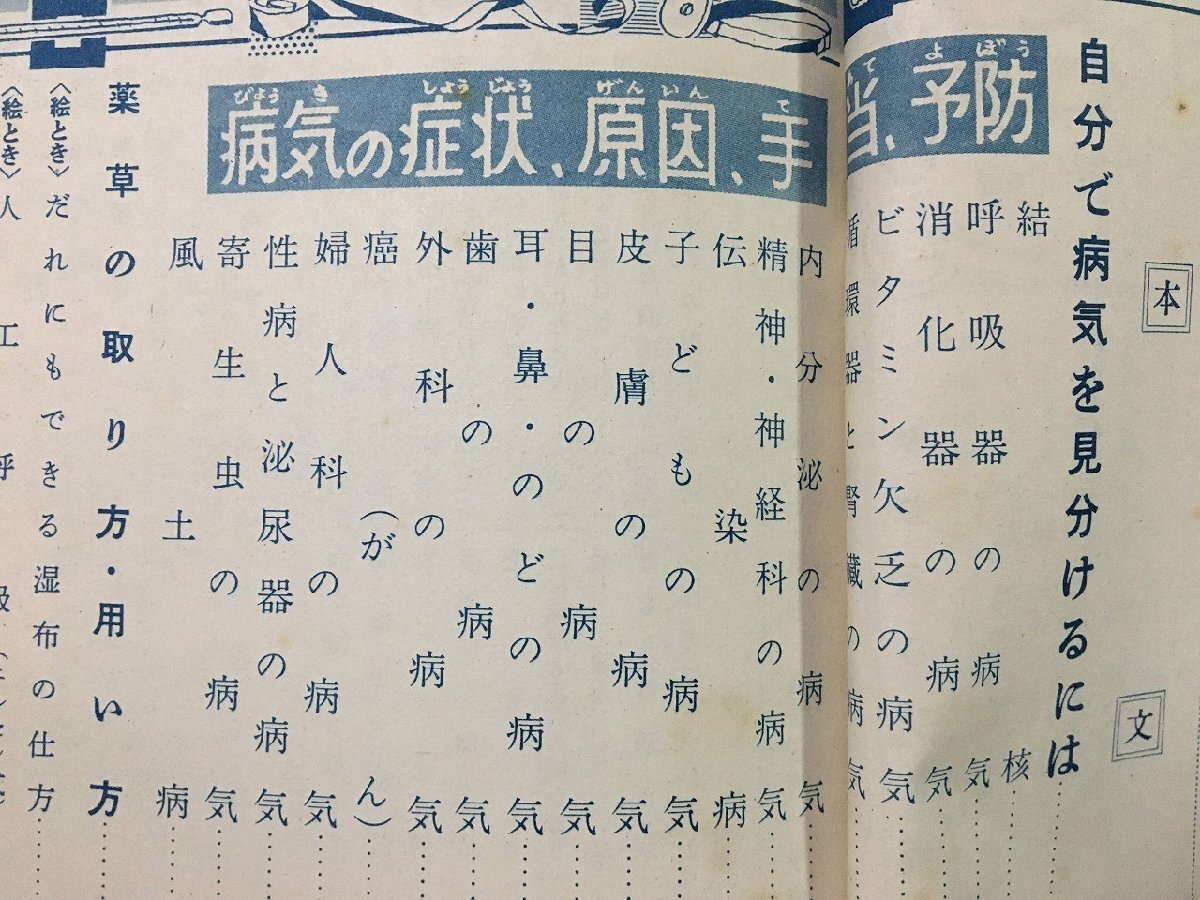 本文
自分で病気を見分けるには
病気の症状、原因、手当、予防
結核
呼吸器の病気
消化器の病気
ビタミン欠乏の病気
循環器と腎臓の病気
内分泌の病気
精神・神経科の病気
伝染病
子どもの病気
皮膚の病気
目の病気
耳・鼻・のどの病気
歯の病気
外科の病気
癌(がん)
婦人科の病気
性病と泌尿器の病気
寄生虫の病気
風土病
薬草の取り方・用い方
〈絵とき〉だれにもできる湿布の仕方
〈絵とき〉人工呼吸